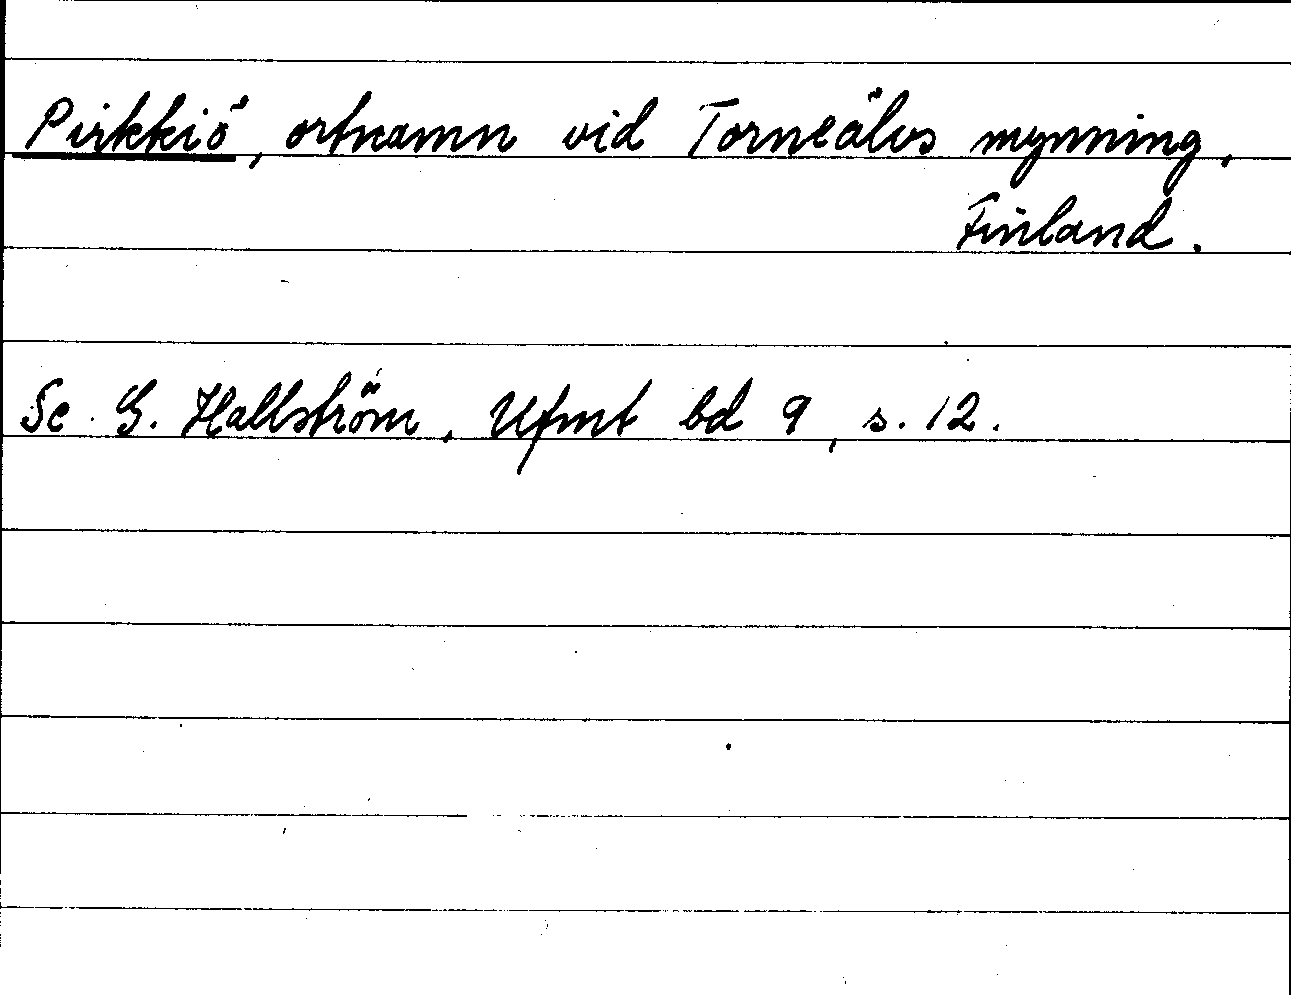 Pirkkiö, ortnamn vid Torneälvs mynning,
Finland.
Se G. Hallström, Ufmt bd 9, s. 12.